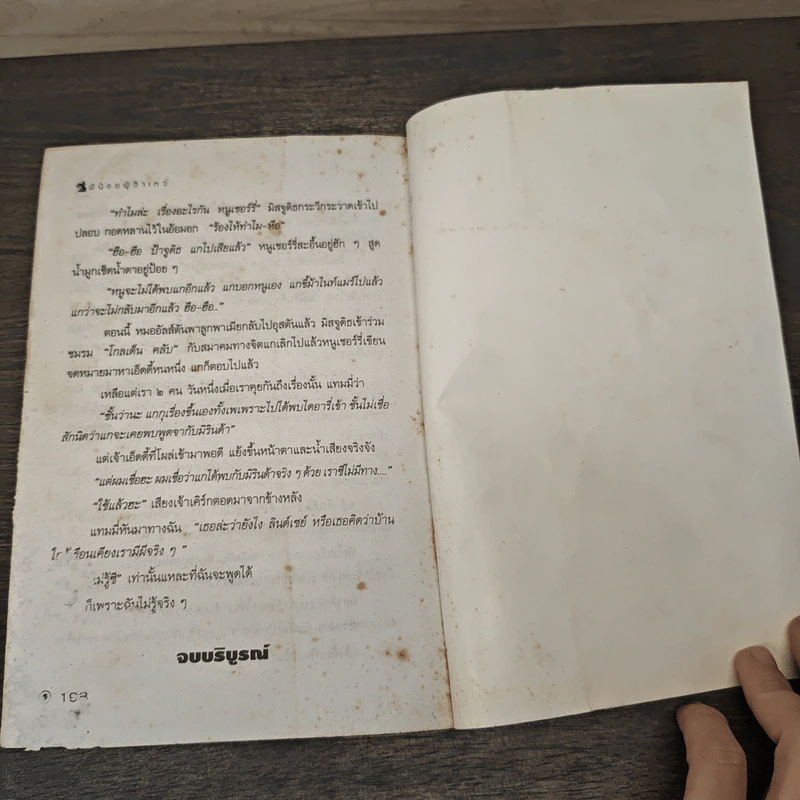 ผีน้อยผู้ว้าเหว่
"ทำไมล่ะ เรื่องอะไรกัน หนูเชอร์รี่" มิสจูดิธกระวีกระวาดเข้าไป
ปลอบ กอดหลานไว้ในอ้อมอก "ร้องไห้ทำไม-หือ"
"ฮือ-ฮือ ป้าจูดิธ แกไปเสียแล้ว" หนูเชอร์รี่สะอื้นอยู่ฮัก ๆ สูด
น้ำมูกเช็ดน้ำตาอยู่ป้อย ๆ
"หนูจะไม่ได้พบแกอีกแล้ว แกบอกหนูเอง แกขี่ม้าไนท์แมร์ไปแล้ว
แกว่าจะไม่กลับมาอีกแล้ว ฮือ-ฮือ.."
ตอนนี้ หมออัลส์ตันพาลูกพาเมียกลับไปฮุสตันแล้ว มิสจูดิธเข้าร่วม
ชมรม "โกลเด็น คลับ" กับสมาคมทางจิตแกเลิกไปแล้วหนูเชอร์รี่เขียน
จดหมายมาหาเอ็ดดี้หนหนึ่ง แกก็ตอบไปแล้ว
เหลือแต่เรา ๒ คน วันหนึ่งเมื่อเราคุยกันถึงเรื่องนั้น แทมมี่ว่า
"ชั้นว่านะ แกกุเรื่องขึ้นเองทั้งเพเพราะไปได้พบไดอารี่เข้า ชั้นไม่เชื่อ
สักนิดว่าแกจะเคยพบพูดจากับมิรินด้า"
แต่เจ้าเอ็ดดี้ที่โผล่เข้ามาพอดี แย้งขึ้นหน้าตาและน้ำเสียงจริงจัง
"แต่ผมเชื่อฮะ ผมเชื่อว่าแกได้พบกับมิรินด้าจริง ๆ ด้วย เราซีไม่มีทาง...."
"ใช้แล้วฮะ" เสียงเจ้าเคิร์กตอดมาจากข้างหลัง
แทมมี่หันมาทางฉัน "เธอล่ะว่ายังไง ลินด์เซย์ หรือเธอคิดว่าบ้าน
เรือนเคียงเรามีผีจริง ๆ "
ไม่รู้ซี" เท่านั้นแหละที่ฉันจะพูดได้
ก็เพราะฉันไม่รู้จริง ๆ
จบบริบูรณ์
198